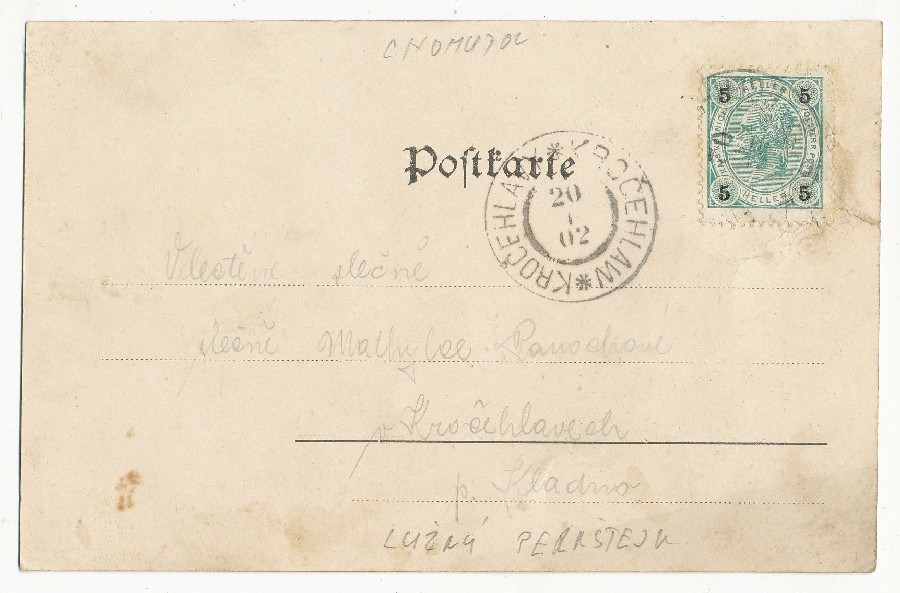 CHOMUTOV
5 HELLER 5
5 HELLER 5
Postkarte
KROČEHLAW * KROČEHLAW *
20
1
02
slečně
slečně Mathylce Panochové
v Kročehlavech
p. Kladno
LUŽNÝ PERRŠTEJN